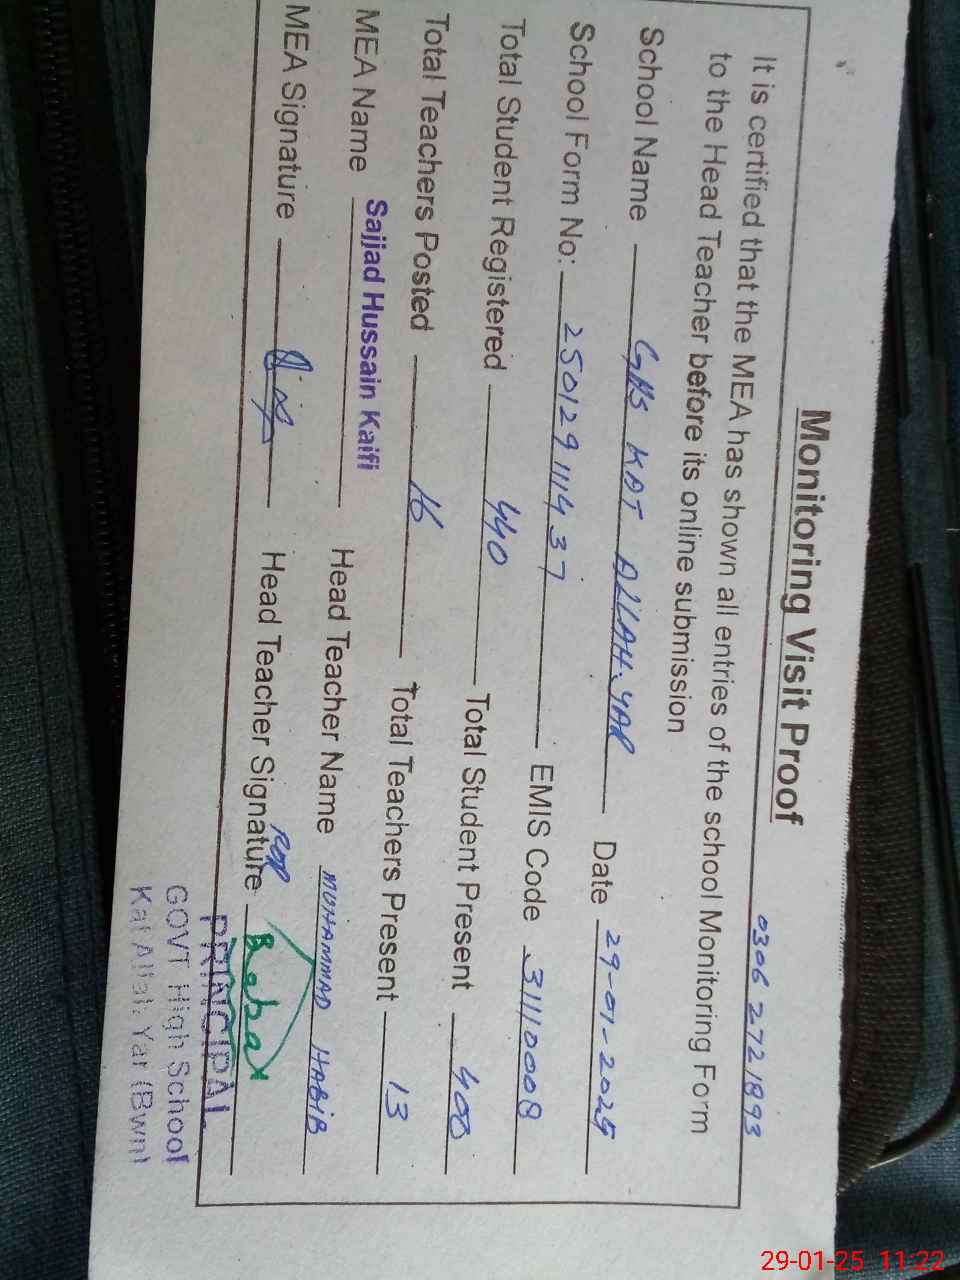 Monitoring Visit Proof
0306 2721893
It is certified that the MEA has shown all entries of the school Monitoring Form
to the Head Teacher before its online submission
School Name GHS KAT ALLAH.YAR Date 29-01-2025
School Form No: 25012911437 EMIS Code 31110008
Total Student Registered 440 Total Student Present 400
Total Teachers Posted 16 Total Teachers Present 13
MEA Name Sajjad Hussain Kaifi Head Teacher Name MUHAMMAD HABIB
MEA Signature Head Teacher Signature FOR Babar
PRINCIPAL
GOVT. High School
Kat Allah Yar (Bwn)
29-01-25 11:22